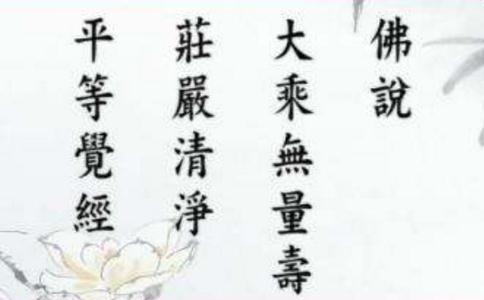 佛說
大乘無量壽
莊嚴清淨
平等覺經